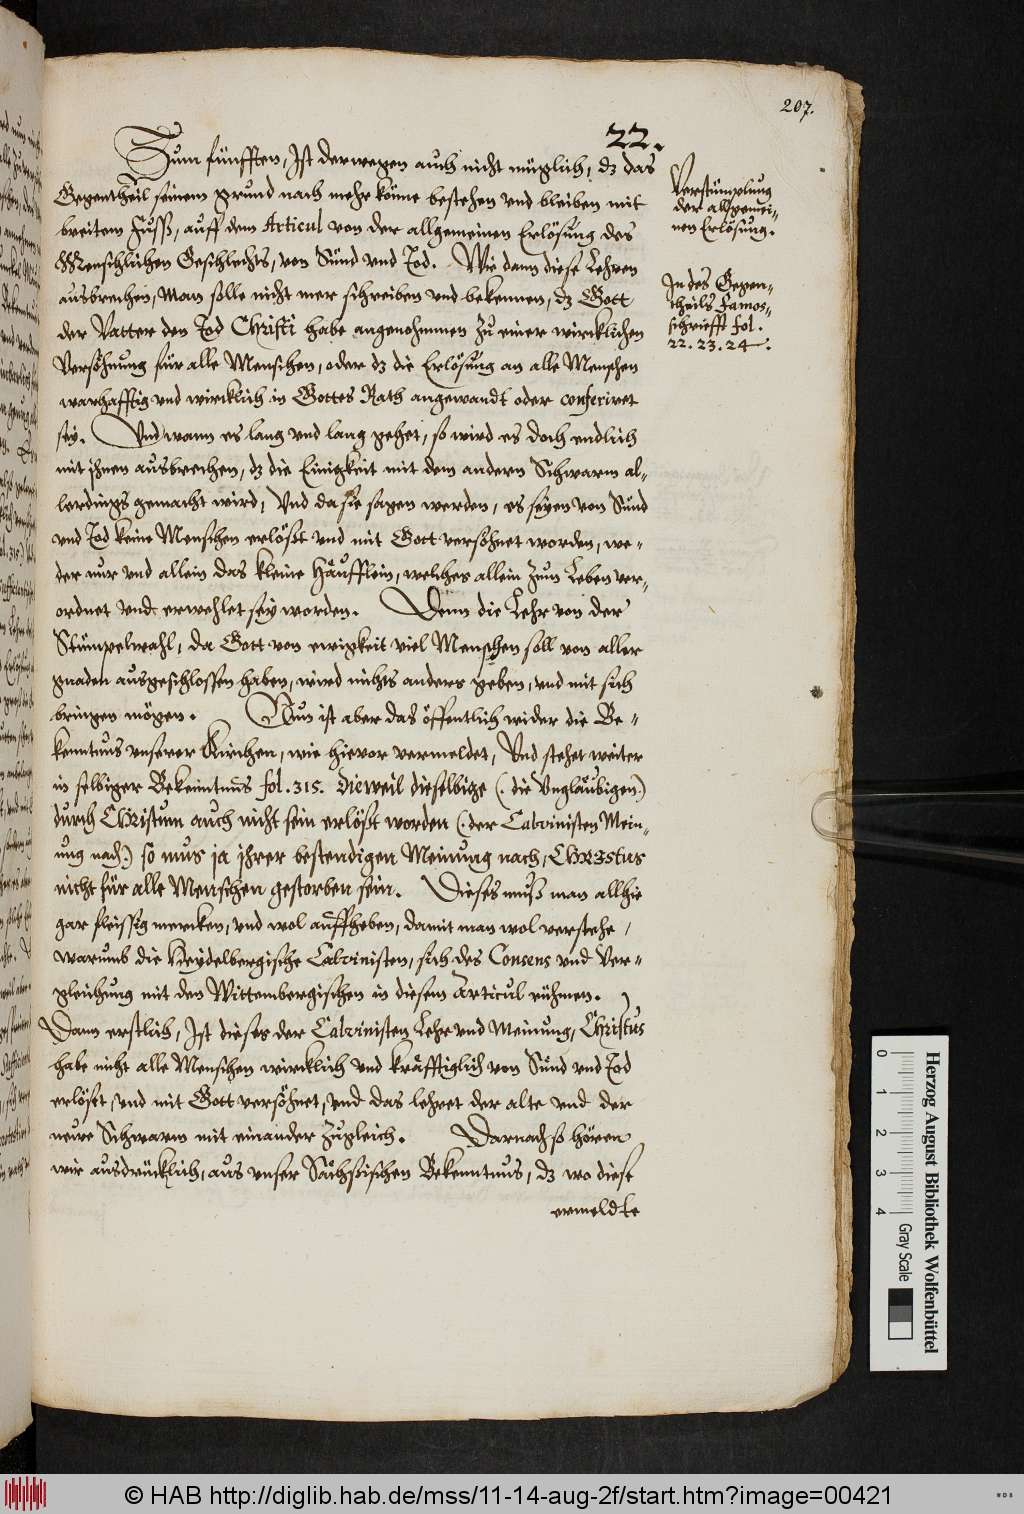 207.
22.
Zum fünfften, Ist derwegen auch nicht müglich, dz das
Gegentheil seinem grund nach mehr könne bestehen vnd bleiben mit
breitem Fuss, auff dem Articul von der allgemeinen Erlösung des
Menschlichen Geschlechts, von Sünd vnd Tod. Wie dann diese Lehren
ausbrechen, Man solle nicht mer schreiben vnd bekennen, dz Gott
der Vatter den Tod Christi habe angenohmmen zu einer wircklichen
Versöhnung für alle Menschen, oder dz die Erlösung an alle Menschen
warhafftig vnd wircklich in Gottes Rath angewandt oder conferiret
sey. Vnd wann es lang vnd lang gehet, so wird es doch endlich
mit ihnen ausbrechen, dz die Einigkeit mit dem andern Schwarm al-
lerdings gemacht wird, Vnd da sie sagen werden, es seyen von Sünd
vnd Tod keine Menschen erlöst vnd mit Gott versöhnet worden, we-
der nur vnd allein das kleine Häufflein, welches allein zum Leben ver-
ordnet vnd erwehlet sey worden. Denn die Lehr von der
Stümpelwahl, da Gott von ewigkeit viel Menschen soll von aller
gnaden ausgeschlossen haben, wird nichts anders geben, vnd mit sich
bringen mögen. Nun ist aber das öffentlich wider die Be-
kenntnus vnserer Kirchen, wie hievor vermeldet, Vnd stehet weiter
in selbiger Bekenntnus fol. 315. Dieweil dieselbige (. die Vngläubigen.)
durch Christum auch nicht sein erlöst worden (. der Calvinisten Mein-
ung nach.) so mus ja ihrer bestendigen Meinung nach, Christus
nicht für alle Menschen gestorben sein. Dieses muß man allhie
gar fleissig mercken, vnd wol auffheben, damit man wol verstehe,
warumb die Heydelbergische Calvinisten, sich des Consens vnd Ver-
gleichung mit den Wittembergischen in diesem Articul rühmen.
Dann erstlich, Ist dieses der Calvinisten Lehr vnd Meinung, Christus
habe nicht alle Menschen wircklich vnd kräfftiglich von Sünd vnd Tod
erlöst, vnd mit Gott versöhnet, vnd das lehret der alte vnd der
neuwe Schwarm mit einander zugleich. Darnach so hören
wir ausdrücklich, aus vnser Sächsischen Bekenntnus, dz wo diese
vermeldte
Verstümplung
der allgemei-
nen Erlösung.
In des Gegen-
theils Famos-
schrifft fol.
22. 23. 24.
Herzog August Bibliothek Wolfenbüttel
0 1 2 3 4
Gray Scale
© HAB http://diglib.hab.de/mss/11-14-aug-2f/start.htm?image=00421